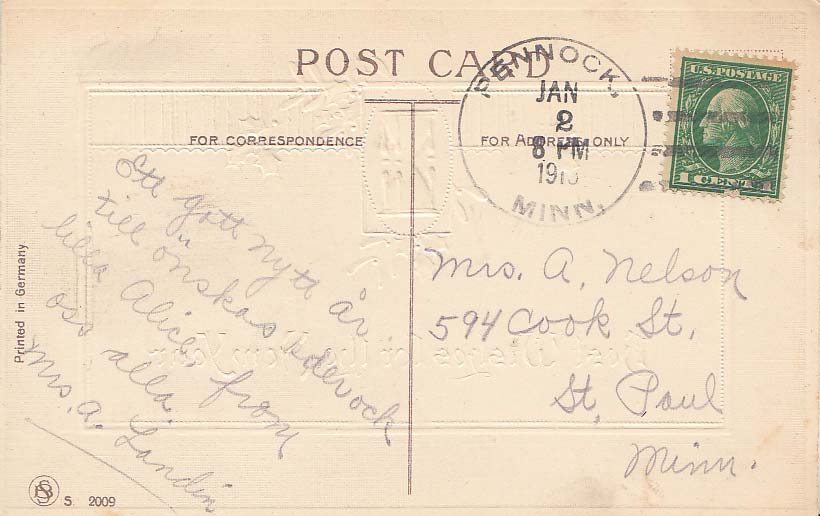 POST CARD
FOR CORRESPONDENCE
FOR ADDRESS ONLY
PENNOCK,
JAN
2
8 PM
191
MINN.
U.S. POSTAGE
1 CENT 1
Ett gott nytt år
till önskas eder ock
lilla Alice, from
oss alla.
Mrs. A. Landin
Mrs. A. Nelson
594 Cook St.
St. Paul
Minn.
Printed in Germany
S 2009